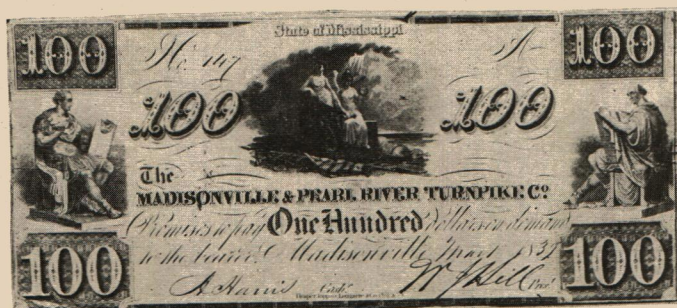 State of Mississippi
100 No. 147 A 100
100 100
The
MADISONVILLE & PEARL RIVER TURNPIKE Co
Promises to pay One Hundred dollars on demand
to the bearer Madisonville 1839
100 A. Harris Cash. W Hill Prest. 100